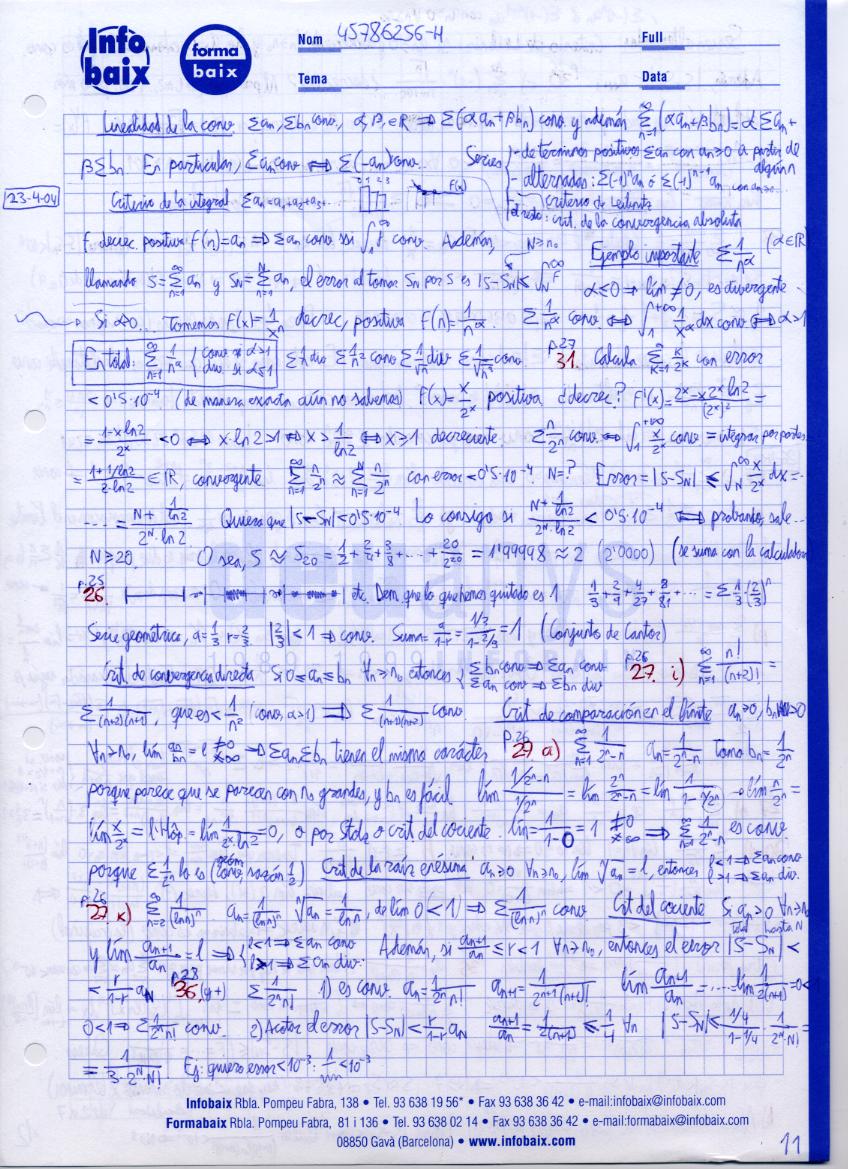 Infobaix
forma baix
Nom 45786256-H Full
Tema Data
Linealidad de la conv Σan, Σbn conv, α, β, ∈ℝ ⟹ Σ(αan+βbn) conv y además Σ(αan+βbn)=αΣan+
βΣbn En particular, Σan conv ⟺ Σ(-an) conv. Series - de términos positivos Σan con an≥0 a partir de algún
- alternadas: Σ(-1)^n an ó Σ(-1)^(n-1) an con an≥
23-4-04
Criterio de la integral Σan=a1+a2+a3+... 0 1 2 3 f(x) criterio de Leibnitz
resto: crit. de la convergencia absoluta
f decrec. positiva f(n)=an ⟹ Σan conv ssi ∫1^∞ f conv Además, N≥n0 Ejemplo importante Σ 1/n^α (α∈ℝ
llamando S=Σ an y SN=Σ an, el error al tomar SN por S es |S-SN|≤∫N^∞ F α≤0 ⟹ lím≠0, es divergente
Si α>0... Tomemos F(x)=1/x^α decrec, positiva F(n)=1/n^α. Σ 1/n^α conv ⟺ ∫1^+∞ 1/x^α dx conv ⟺ α>1
En total: Σ 1/n^α { conv si α>1 div si α≤1 Σ 1/n div Σ 1/n² conv Σ 1/√n div Σ 1/√n³ conv. p.27 31. Calcula Σ k/2^k con error
<0'5·10^-4 (de manera exacta aún no sabemos) F(x)=x/2^x positiva d decrec? F'(x)=(2^x-x2^x ln2)/(2^x)² =
=(1-x ln2)/2^x <0 ⟺ x·ln2>1 ⟺ x>1/ln2 ⟺ x≥1 decreciente. Σ n/2^n conv. ⟺ ∫1^+∞ x/2^x conv = integrar por partes
=(1+1/ln2)/(2·ln2) ∈ℝ, convergente Σ n/2^n ≈ Σ n/2^n con error <0'5·10^-4 N=? Error=|S-SN| ≤ ∫N^∞ x/2^x dx=
....=(N+1/ln2)/(2^N·ln2) Quiero que |S-SN|<0'5·10^-4 Lo consigo si (N+1/ln2)/(2^N·ln2) <0'5·10^-4 ⟺ probando, sale...
N≥20. O sea, S≈S20=1/2+2/4+3/8+...+20/2^20=1'99998≈2 (2'0000) (se suma con la calculadora
p.25
26. etc. Dem. que lo que hemos quitado es 1 1/3+2/9+4/27+8/81+...=Σ 1/3·(2/3)^n
Serie geométrica, a=1/3 r=2/3 |2/3|<1 ⟹ conv. Suma=a/(1-r)=(1/3)/(1-2/3)=1 (Conjunto de Cantor)
Crit. de convergencia directa Si 0≤an≤bn ∀n≥n0 entonces { Σbn conv ⟹ Σan conv Σan conv ⟹ Σbn div p.26 27. i) Σ n!/(n+2)! =
Σ 1/((n+2)(n+1)), que es < 1/n² (conv, α>1) ⟹ Σ 1/((n+1)(n+2)) conv. Crit. de comparación en el límite an≥0, bn>0
∀n≥n0, lím an/bn=l ≠0 ≠∞ ⟹ Σan Σbn tienen el mismo carácter p.26 27 a) Σ 1/(2^n-n) an=1/(2^n-n) tomo bn=1/2^n
porque parece que se parecen con ns grandes, y bn es fácil lím (1/(2^n-n))/(1/2^n)=lím 2^n/(2^n-n)=lím 1/(1-n/2^n) → lím n/2^n=
lím x/2^x = l'Hôp.=lím 1/(2^x·ln2)=0, o por Stolz o crit. del cociente. lím=1/(1-0)=1 ≠0 ≠∞ ⟹ Σ 1/(2^n-n) es conv
porque Σ 1/2^n lo es (geom, razón 1/2) Crit de la raíz enésima an≥0 ∀n≥n0, lím ⁿ√an=l, entonces l<1⟹Σan conv l>1⟹Σan div.
p.26
27 k) Σ 1/(ln n)^n an=1/(ln n)^n ⁿ√an=1/ln n, de lím 0<1) ⟹ Σ 1/(ln n)^n conv Crit del cociente Si an>0 ∀n≥n0
y lím an+1/an=l ⟹ { l<1⟹Σan conv l>1⟹Σan div. Además, si an+1/an ≤r<1 ∀n≥n0, entonces el error |S-SN|< total hasta N
< r/(1-r) aN p.28 36. Σ 1/(2^n n!) 1) es conv. an=1/(2^n n!) an+1=1/(2^(n+1)(n+1)!) lím an+1/an=....=lím 1/(2(n+1))=0<1
0<1⟹Σ 1/(2^n n!) conv. 2) Acotar el error |S-SN|< r/(1-r) aN an+1/an=1/(2(n+1)) ≤1/4 ∀n |S-SN|≤ (1/4)/(1-1/4) · 1/(2^N·N!) =
=1/(3·2^N·N!) Ej: quiero error <10^-3: <10^-3
Infobaix Rbla. Pompeu Fabra, 138 • Tel. 93 638 19 56* • Fax 93 638 36 42 • e-mail:infobaix@infobaix.com
Formabaix Rbla. Pompeu Fabra, 81 i 136 • Tel. 93 638 02 14 • Fax 93 638 36 42 • e-mail:formabaix@infobaix.com
08850 Gavà (Barcelona) • www.infobaix.com
11